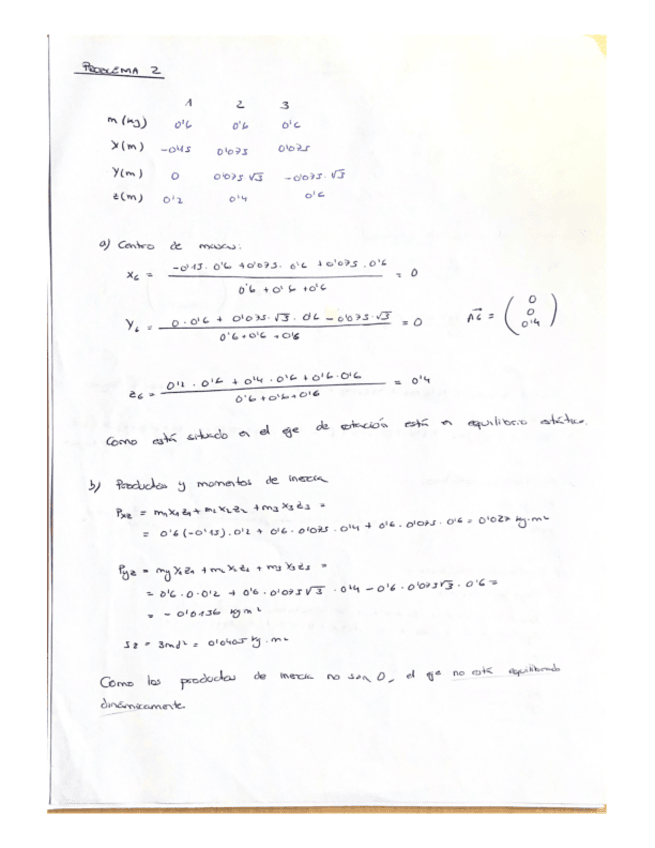 PROBLEMA 2
1 2 3
m (kg) 0'6 0'6 0'6
X(m) -0'15 0'075 0'075
Y(m) 0 0'075 √3 -0'075·√3
z(m) 0'2 0'4 0'6
a) Centro de masas:
X_G = (-0'15 · 0'6 + 0'075 · 0'6 + 0'075 · 0'6) / (0'6 + 0'6 + 0'6) = 0
Y_G = (0 · 0'6 + 0'075·√3 · 0'6 - 0'075·√3) / (0'6 + 0'6 + 0'6) = 0
AG = (0 0 0'4)
z_G = (0'2 · 0'6 + 0'4 · 0'6 + 0'6 · 0'6) / (0'6 + 0'6 + 0'6) = 0'4
Como está situado en el eje de rotación está en equilibrio estático.
b) Productos y momentos de inercia
Pxz = m1x1z1 + m2x2z2 + m3x3z3 =
= 0'6(-0'15)·0'2 + 0'6·0'075·0'4 + 0'6·0'075·0'6 = 0'027 kg·m²
Pyz = m1y1z1 + m2y2z2 + m3y3z3 =
= 0'6·0·0'2 + 0'6·0'075√3·0'4 - 0'6·0'075√3·0'6 =
= -0'0156 kg m²
Iz = 3md² = 0'0405 kg·m²
Como los productos de inercia no son 0, el eje no está equilibrado
dinámicamente.